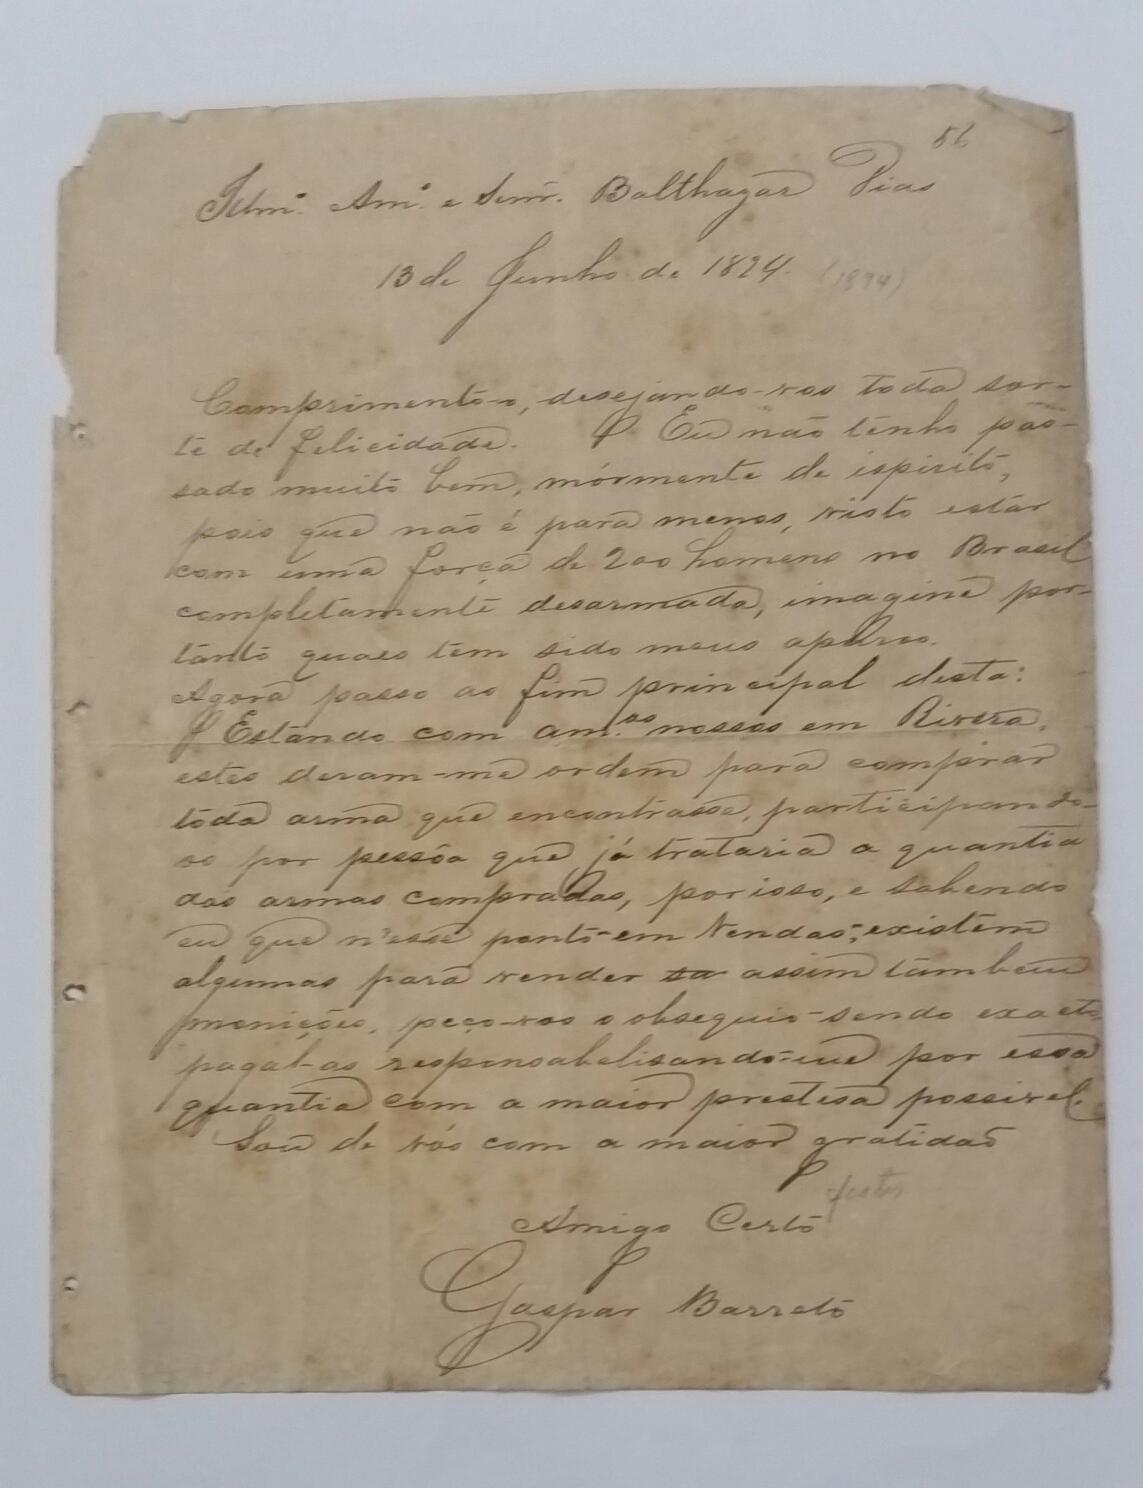 56
Illmº. Amº. e Senr. Balthazar Dias
13 de Junho de 1894. (1894)
Comprimento-o, desejando-vos toda sor-
te de felicidade. Eu não tenho pas-
sado muito bem, mórmente de ispirito,
pois que não é para menos, visto estar
com uma força de 200 homens no Brasil
completamente desarmada, imagine por-
tanto quaes tem sido meus apuros.
Agora passo ao fim principal desta:
Estando com am.os nossos em Rivera,
estes deram-me ordem para comprar
toda arma que encontrasse, participando-
os por pessôa que já trataria a quantia
das armas compradas, por isso, e sabendo
eu que n'esse ponto em Vendas, existem
algumas para vender assim tambem
monições, peço-vos o obsequio sendo exacto,
pagal-as responsabelisando-me por essa
quantia com a maior prestesa possivel.
Sou de vós com a maior gratidão
Amigo Certo
Gaspar Barreto